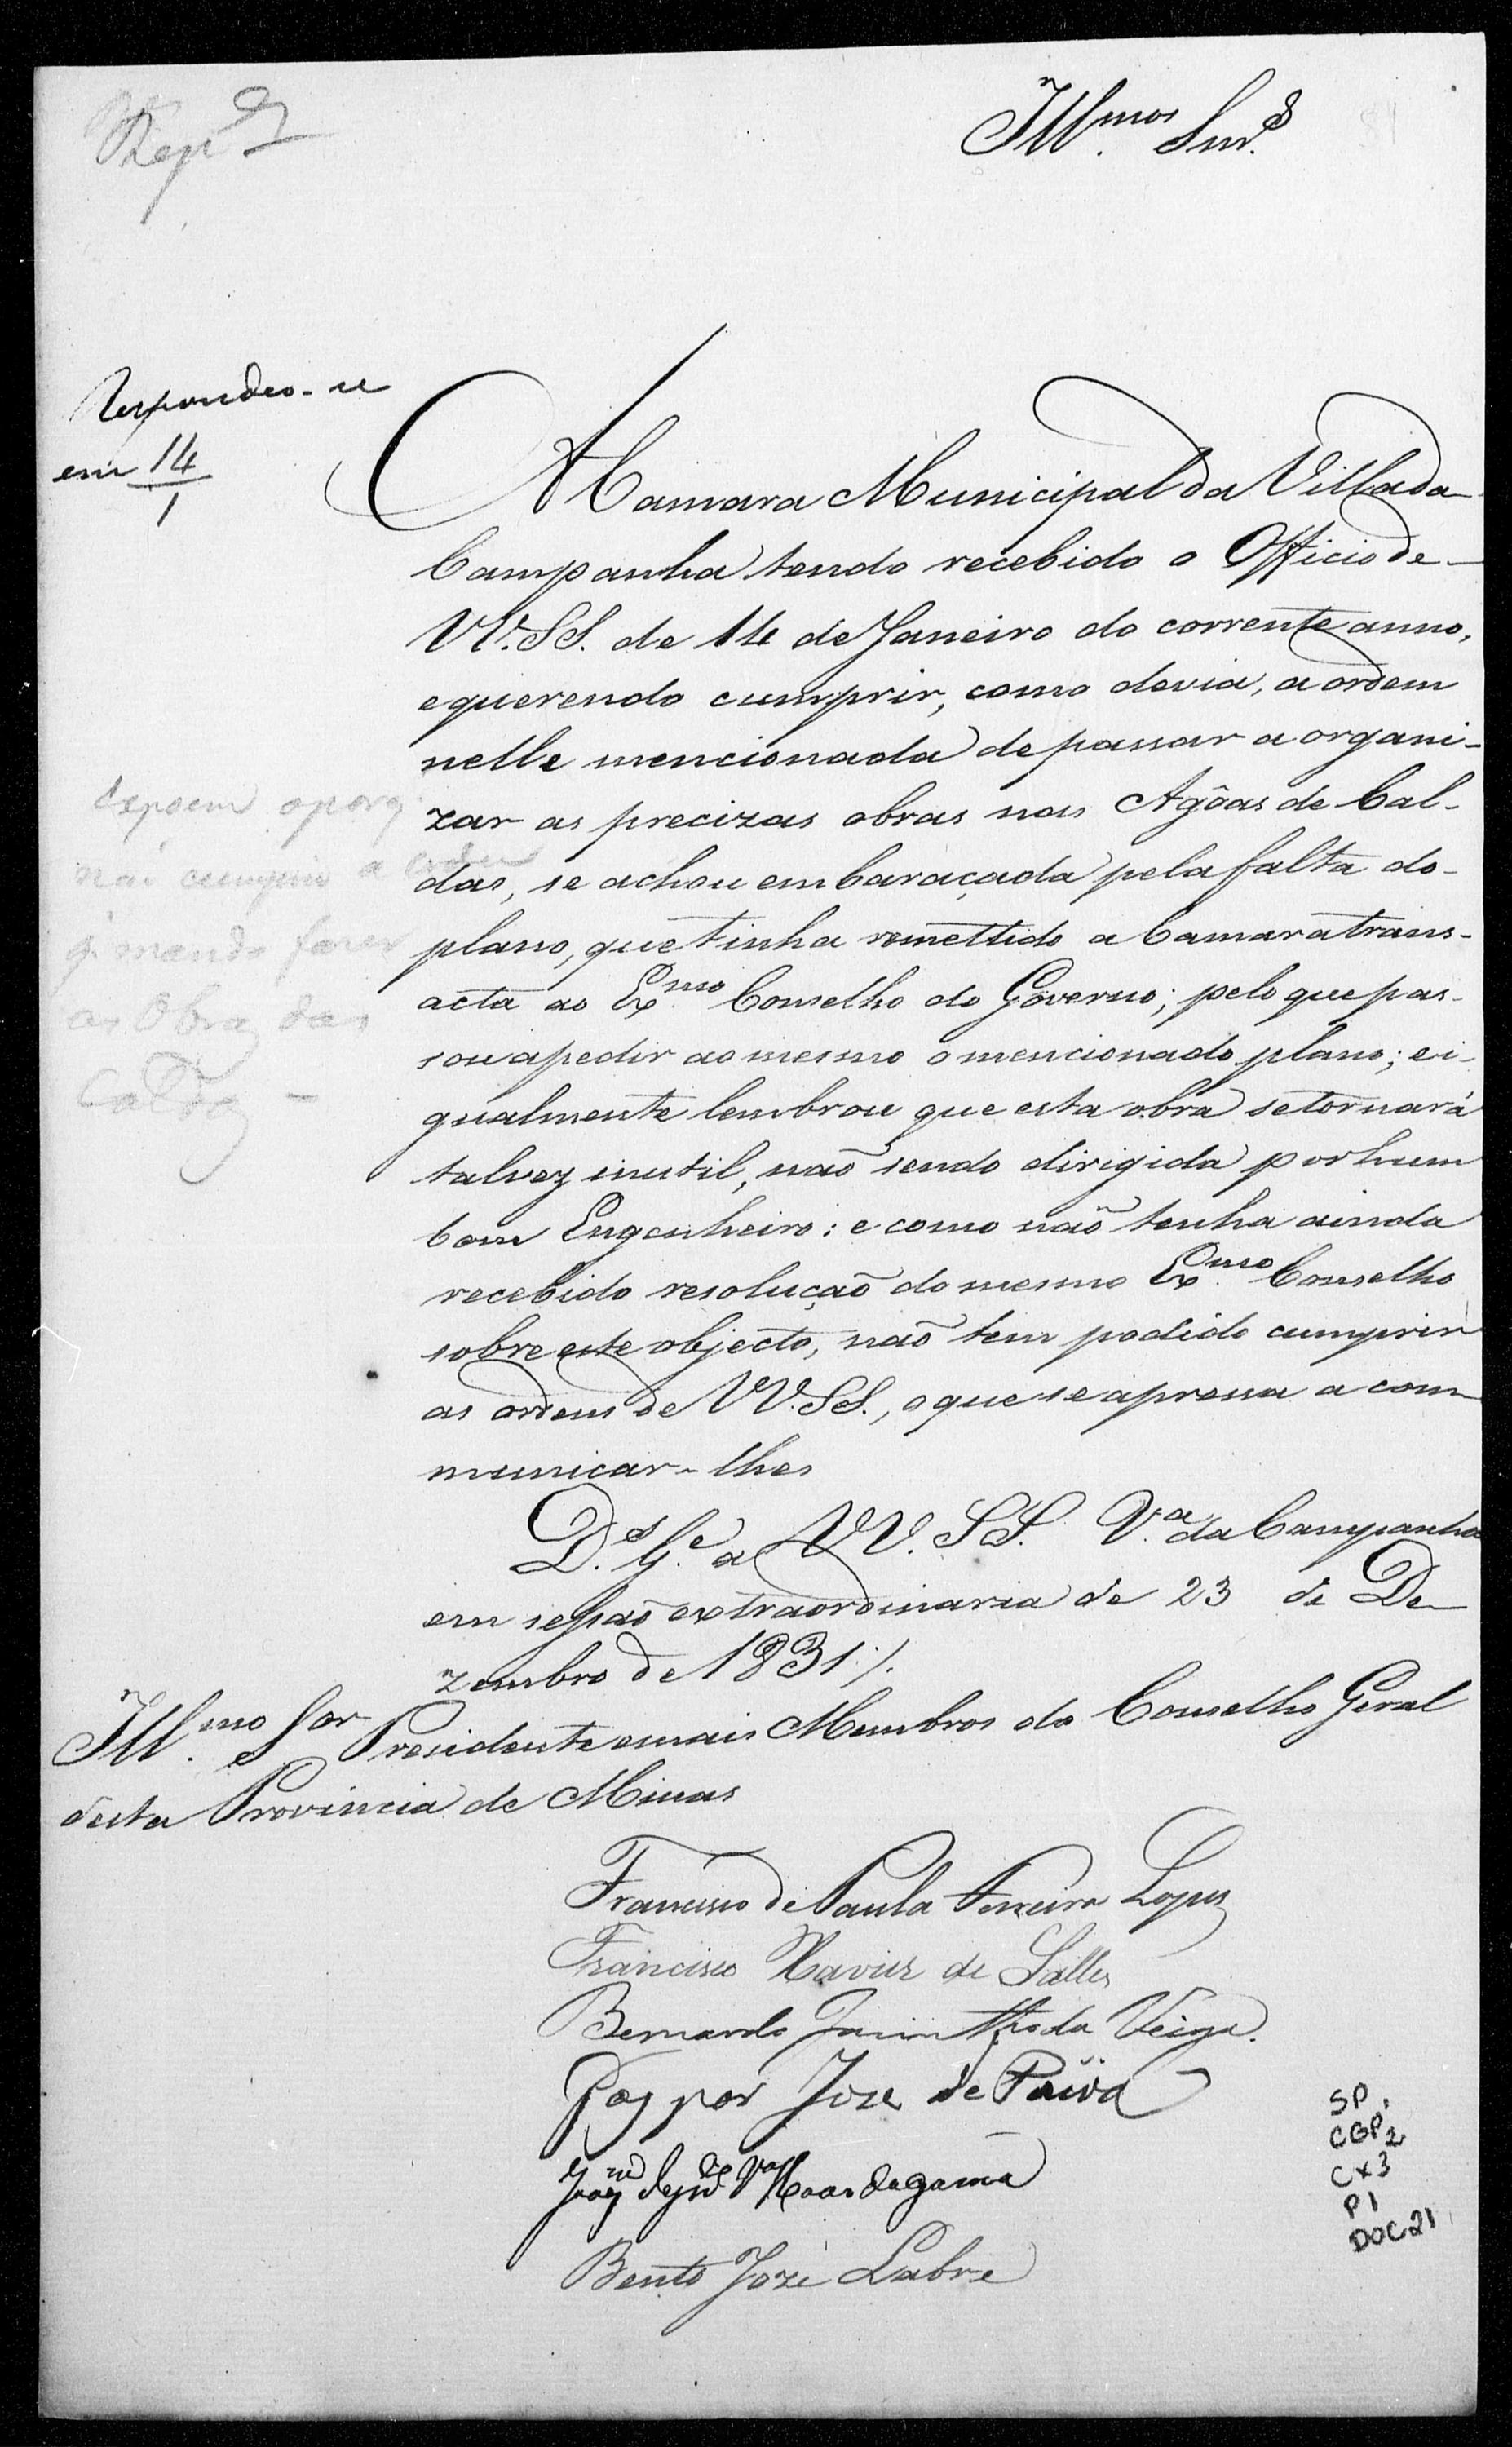 Ill.mos Snr.s
Respondeo-se
em 14
1
A Camara Municipal da Villa da
Campanha tendo recebido o Officio de
VV.SS. de 14 de Janeiro do corrente anno,
e querendo cumprir, como devia, a ordem
nelle mencionada de passar a organi-
zar as precizas obras nas Agôas de Cal-
das, se achou embaraçada pela falta do
plano, que tinha remettido a Camara trans-
acta ao Ex.mo Conselho do Governo; pelo que pas-
sou a pedir ao mesmo o mencionado plano; e i-
gualmente lembrou que esta obra se tornará
talvez inutil, não sendo dirigida por hum
bom Engenheiro: e como não tenha ainda
recebido resolução do mesmo Ex.mo Conselho
sobre este objecto, não tem podido cumprir
as ordens de VV.SS., o que se apressa a com-
municar-lhes
D.s G.e a VV. SS. V.a da Campanha
em sessão extraordinaria de 23 de De-
zembro de 1831 /.
Ill.mo Sor Presidente e mais Membros do Conselho Geral
desta Provincia de Minas
expoem o porq
não cumprio a ordem
q. manda fazer
as Obras das
Caldas -
Francisco de Paula Ferreira Lopes
Francisco Xavier de Salles
Bernardo Jacintho da Veiga.
Gaspar Joze de Paiva
Bento Jozé Labre
SP
CGP2
CX3
P1
DOC21